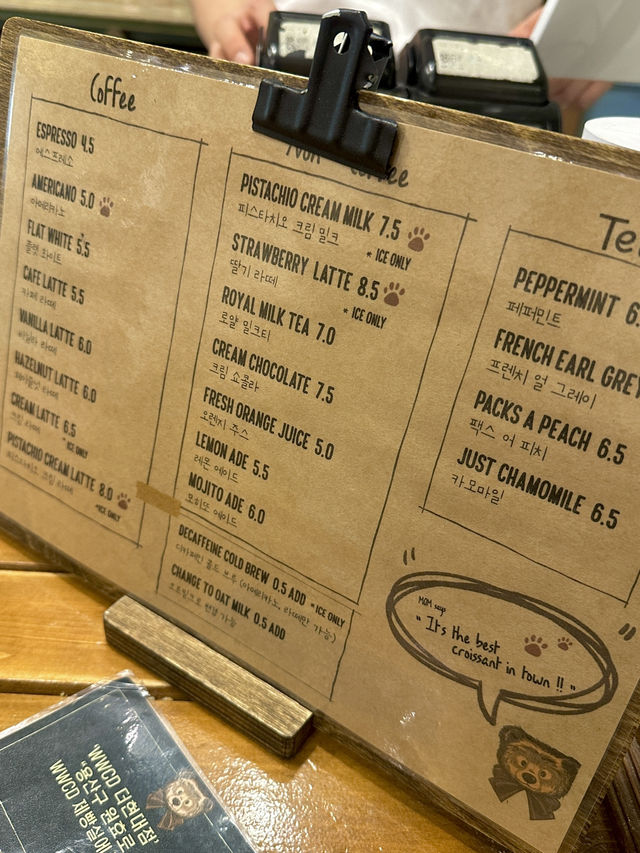 Coffee
ESPRESSO 4.5
에스프레소
AMERICANO 5.0
아메리카노
FLAT WHITE 5.5
플랫 화이트
CAFE LATTE 5.5
카페 라떼
VANILLA LATTE 6.0
바닐라 라떼
HAZELNUT LATTE 6.0
헤이즐넛 라떼
CREAM LATTE 6.5
크림 라떼
* ICE ONLY
PISTACHIO CREAM LATTE 8.0
피스타치오 크림 라떼
*ICE ONLY
Non Coffee
PISTACHIO CREAM MILK 7.5
피스타치오 크림 밀크
* ICE ONLY
STRAWBERRY LATTE 8.5
딸기 라떼
* ICE ONLY
ROYAL MILK TEA 7.0
로얄 밀크티
CREAM CHOCOLATE 7.5
크림 쇼콜라
FRESH ORANGE JUICE 5.0
오렌지 주스
LEMON ADE 5.5
레몬 에이드
MOJITO ADE 6.0
모히또 에이드
DECAFFEINE COLD BREW 0.5 ADD *ICE ONLY
디카페인 콜드 브루 (아메리카노, 라떼만 가능)
CHANGE TO OAT MILK 0.5 ADD
오트밀크로 변경 가능
PEPPERMINT 6.
페퍼민트
FRENCH EARL GREY
프렌치 얼 그레이
PACKS A PEACH 6.5
팩스 어 피치
JUST CHAMOMILE 6.5
카모마일
MOM says
"It's the best
croissant in town !!"
'WWCD 더현대점'
'용산구 원효로
WWCD 제빵실에